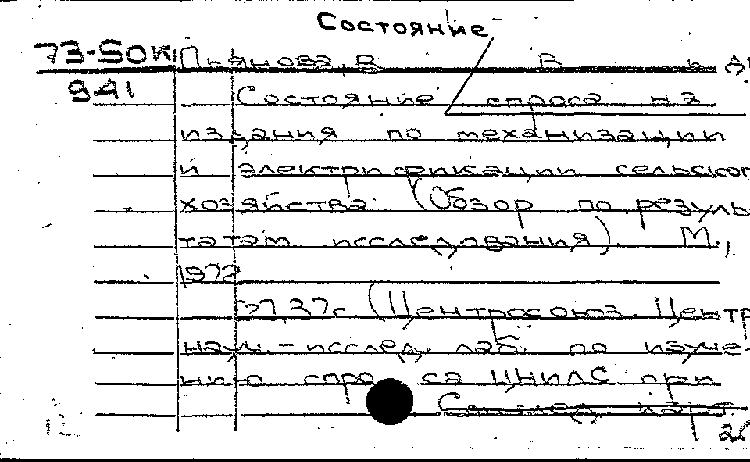 Состояние
73-50К Пьянова, В В
941 Состояние спроса на
издания по механизации
и электрификации сельског
хозяйства. (Обзор по резуль
татам исследования). М.,
1972
37с (Центросоюз. Центр
науч.-исслед. лаб. по изуче-
нию спроса ЦНИЛС при
След. карт.